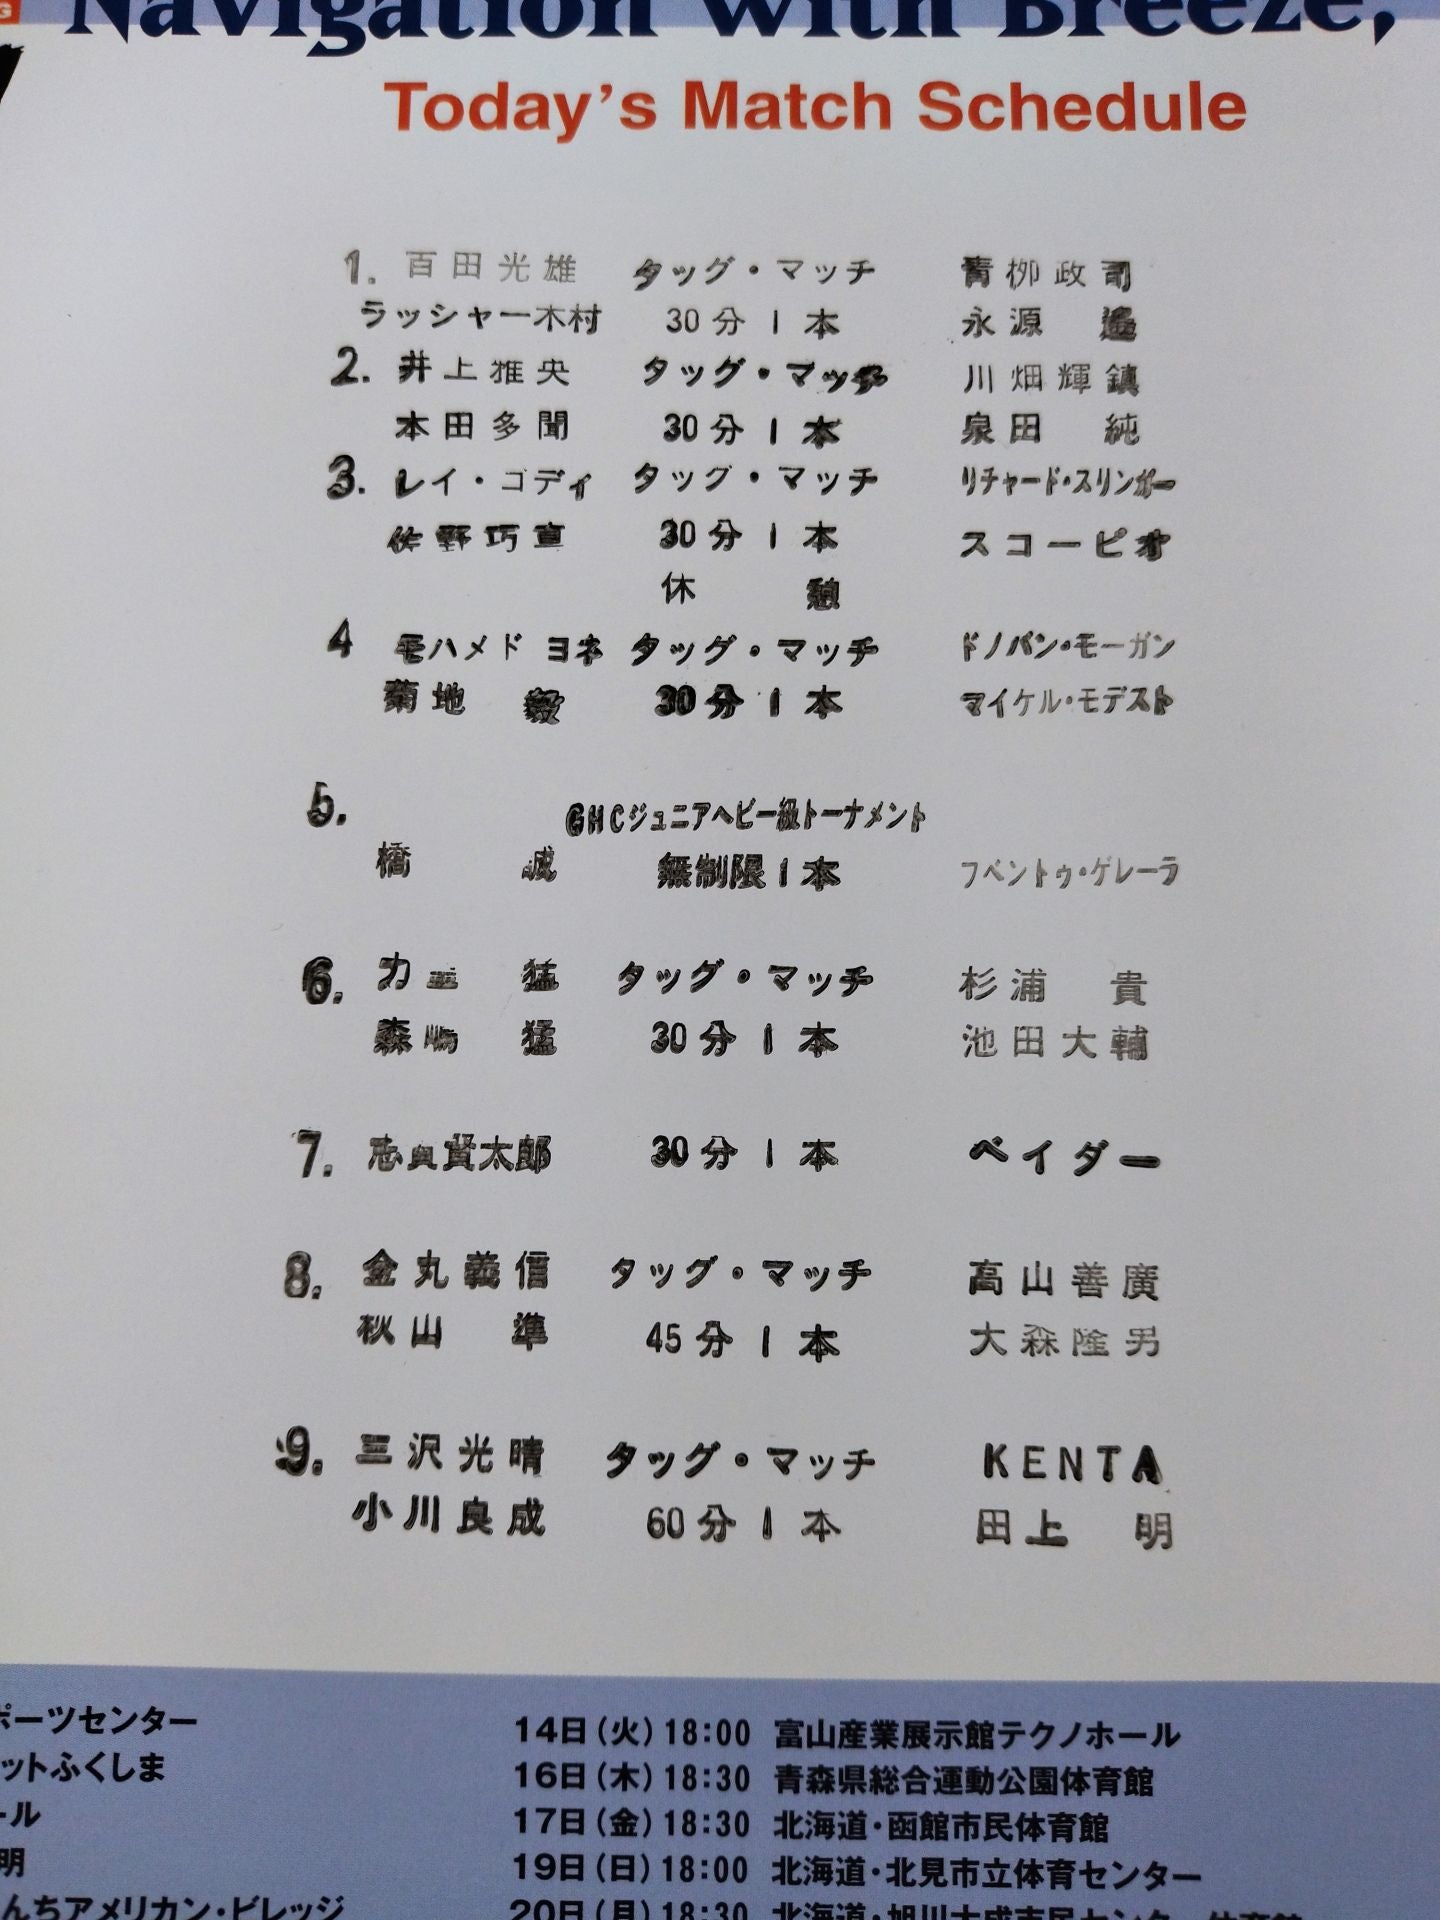 G
Navigation with Breeze,
Today's Match Schedule
1. 百田光雄 タッグ・マッチ 青柳政司
ラッシャー木村 30分1本 永源 遙
2. 井上雅央 タッグ・マッチ 川畑輝鎮
本田多聞 30分1本 泉田 純
3. レイ・ゴディ タッグ・マッチ リチャード・スリンガー
佐野巧真 30分1本 スコーピオ
休 憩
4 モハメド ヨネ タッグ・マッチ ドノバン・モーガン
菊地 毅 30分1本 マイケル・モデスト
5. GHCジュニアヘビー級トーナメント
橋 誠 無制限1本 フベントゥ・ゲレーラ
6. 力皇 猛 タッグ・マッチ 杉浦 貴
森嶋 猛 30分1本 池田大輔
7. 志賀賢太郎 30分1本 ベイダー
8. 金丸義信 タッグ・マッチ 高山善廣
秋山 準 45分1本 大森隆男
9. 三沢光晴 タッグ・マッチ KENTA
小川良成 60分1本 田上 明
ポーツセンター 14日(火)18:00 富山産業展示館テクノホール
ットふくしま 16日(木)18:30 青森県総合運動公園体育館
ール 17日(金)18:30 北海道・函館市民体育館
明 19日(日)18:00 北海道・北見市立体育センター
んちアメリカン・ビレッジ 20日(月)18:30 北海道・旭川大成市民センター体育館